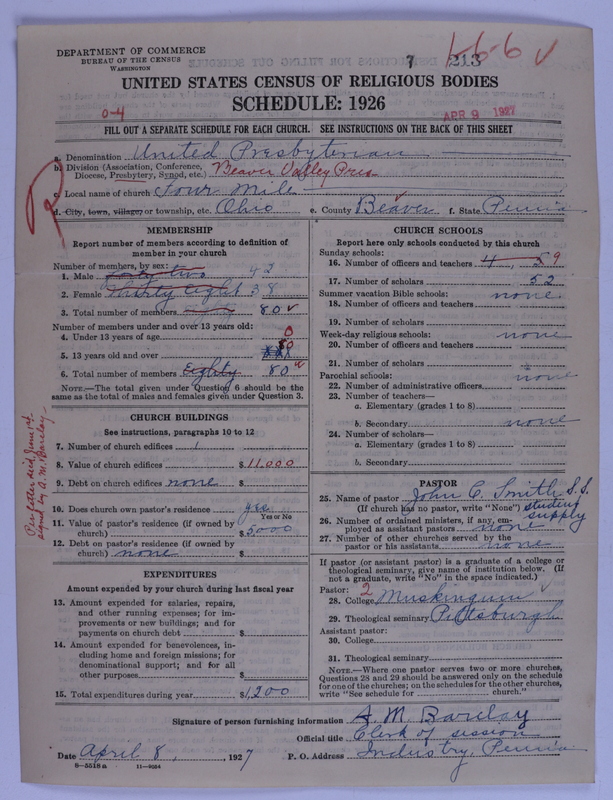 DEPARTMENT OF COMMERCE
BUREAU OF THE CENSUS
WASHINGTON
7 213
6-6 ✓
UNITED STATES CENSUS OF RELIGIOUS BODIES
SCHEDULE: 1926
0-4
APR 9 1927
FILL OUT A SEPARATE SCHEDULE FOR EACH CHURCH. SEE INSTRUCTIONS ON THE BACK OF THIS SHEET
a. Denomination United Presbyterian
b. Division (Association, Conference, Diocese, Presbytery, Synod, etc.) Beaver Valley Pres
c. Local name of church Four Mile
d. City, town, village, or township, etc. Ohio e. County Beaver f. State Penn'a
MEMBERSHIP
Report number of members according to definition of member in your church
Number of members, by sex:
1. Male Forty two 42
2. Female Thirty Eight 38
3. Total number of members 80 ✓
Number of members under and over 13 years old:
4. Under 13 years of age 0
5. 13 years old and over 80
6. Total number of members Eighty 80 ✓
NOTE.—The total given under Question 6 should be the same as the total of males and females given under Question 3.
CHURCH BUILDINGS
See instructions, paragraphs 10 to 12
7. Number of church edifices 1
8. Value of church edifices $ 11,000
9. Debt on church edifices none $
10. Does church own pastor's residence? yes
Yes or No
11. Value of pastor's residence (if owned by church) $ 5000
12. Debt on pastor's residence (if owned by church) none $
Per letter dtd. June 14. signed by A. M. Barclay
EXPENDITURES
Amount expended by your church during last fiscal year
13. Amount expended for salaries, repairs, and other running expenses; for improvements or new buildings; and for payments on church debt $
14. Amount expended for benevolences, including home and foreign missions; for denominational support; and for all other purposes $
15. Total expenditures during year $ 1,200
CHURCH SCHOOLS
Report here only schools conducted by this church
Sunday schools:
16. Number of officers and teachers 4, 5 9
17. Number of scholars 52
Summer vacation Bible schools: none
18. Number of officers and teachers
19. Number of scholars
Week-day religious schools: none
20. Number of officers and teachers
21. Number of scholars
Parochial schools: none
22. Number of administrative officers
23. Number of teachers—
a. Elementary (grades 1 to 8)
b. Secondary none
24. Number of scholars—
a. Elementary (grades 1 to 8)
b. Secondary
PASTOR
25. Name of pastor John C. Smith S.S.
(If church has no pastor, write "None") student supply
26. Number of ordained ministers, if any, employed as assistant pastors none
27. Number of other churches served by the pastor or his assistants none
If pastor (or assistant pastor) is a graduate of a college or theological seminary, give name of institution below. (If not a graduate, write "No" in the space indicated.)
Pastor: 2
28. College Muskingum ✓
29. Theological seminary Pittsburgh
Assistant pastor:
30. College
31. Theological seminary
NOTE.—Where one pastor serves two or more churches, Questions 28 and 29 should be answered only on the schedule for one of the churches; on the schedules for the other churches, write "See schedule for church."
Signature of person furnishing information A. M. Barclay
Official title Clerk of session
Date April 8, 1927 P. O. Address Industry, Penn'a
8—5518 a 11—9024